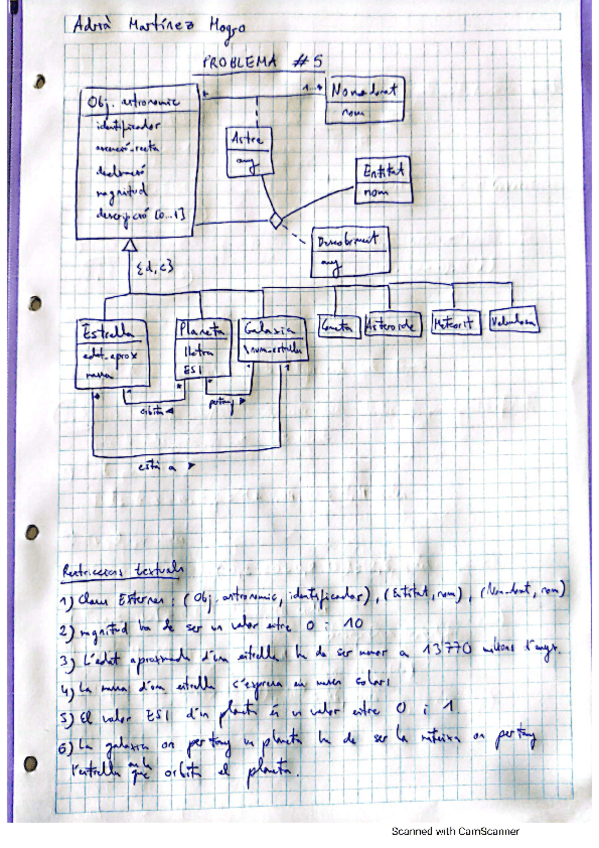 Adrià Martínez Mogro
PROBLEMA #5
Obj. astronomic
identificador
ascenció_recta
declinació
magnitud
descripció [0..1]
*
1..*
Nomdonat
nom
Astre
any
Entitat
nom
Descobriment
any
{d, c}
Estrella
edat_aprox
massa
Planeta
lletra
ESI
Galaxia
\num_estrelles
Cometa
Asteroide
Meteorit
Nebulosa
orbita ◄
pertany ►
està a ►
Restriccions textuals
1) Claus Externes: (Obj. astronomic, identificador), (Entitat, nom), (Nomdonat, nom)
2) magnitud ha de ser un valor entre 0 i 10
3) L'edat aproximada d'una estrella ha de ser menor a 13770 milions d'anys.
4) La massa d'una estrella s'expressa en masses solars
5) El valor ESI d'un planeta és un valor entre 0 i 1.
6) La galaxia on pertany un planeta ha de ser la mateixa on pertany
l'estrella en la que orbita el planeta.
Scanned with CamScanner